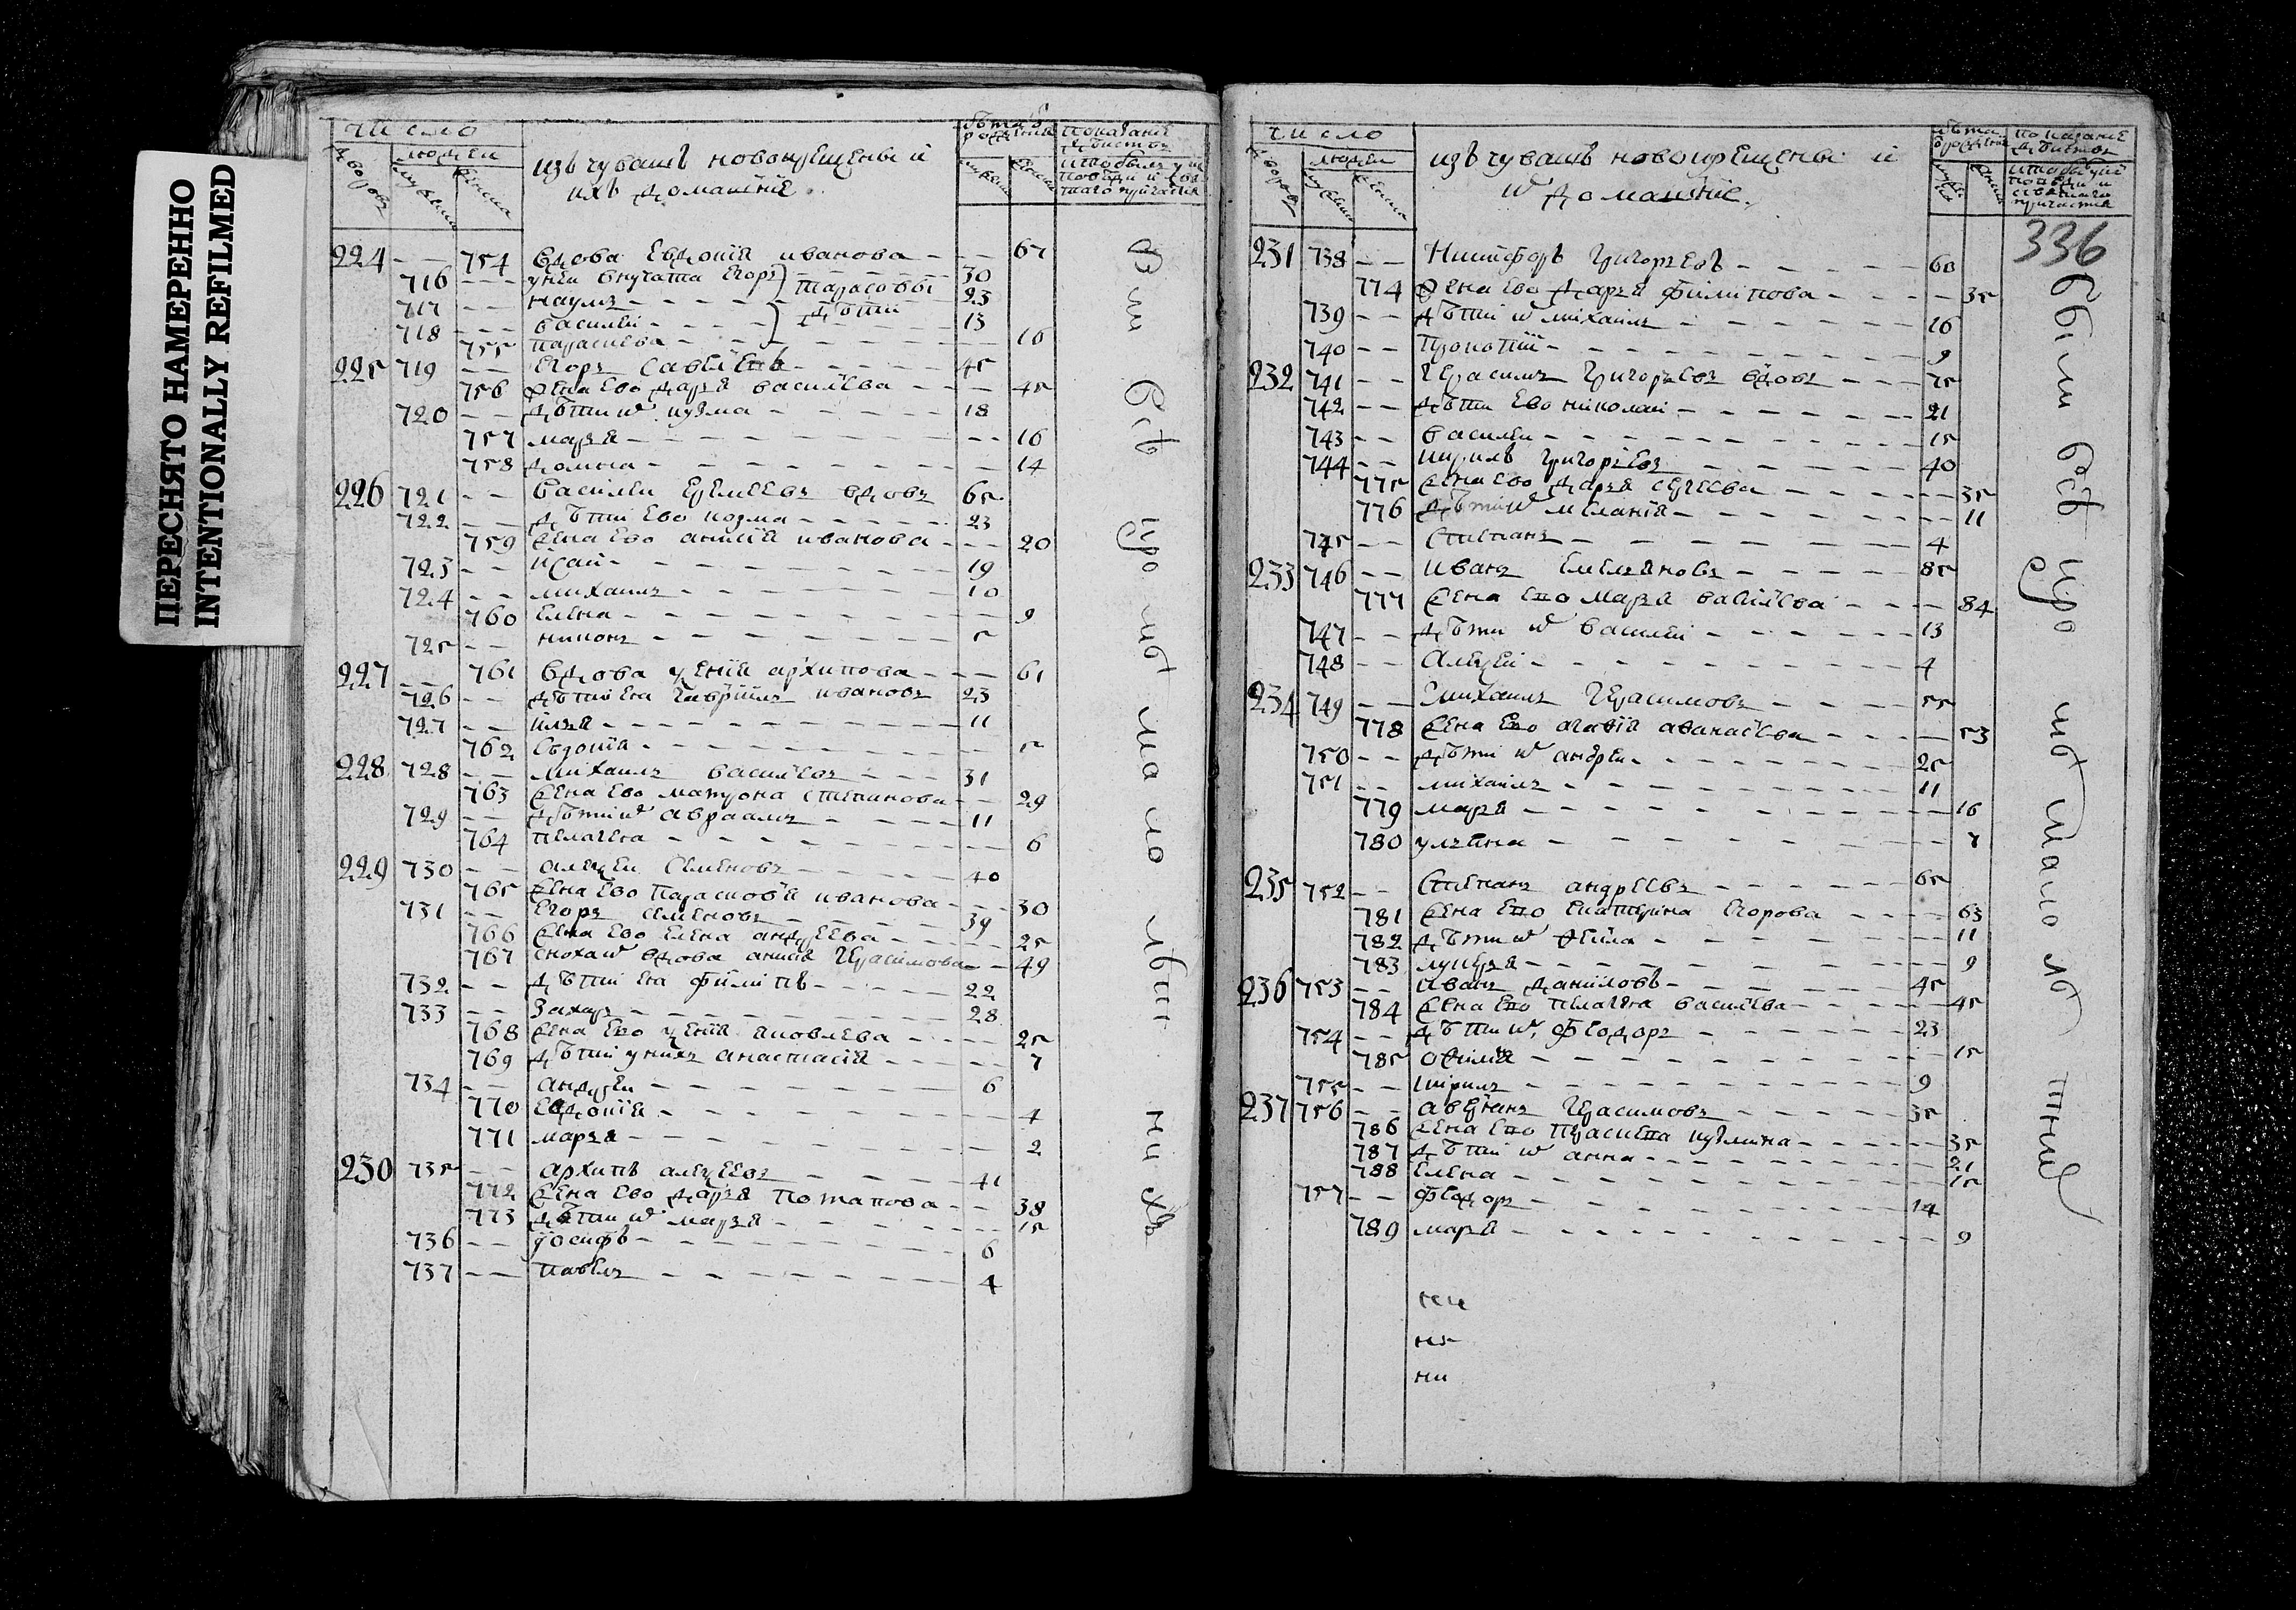 ПЕРЕСНЯТО НАМЕРЕННО
INTENTIONALLY REFILMED
число
людеи
изъ чувашъ новокрещены и
ихъ домашнїе
224 754 вдова Евдокїя иванова 67
716 унеи внучата Егоръ 30
тарасовы
717 наумъ 23
дѣти
718 василеи 13
755 параскева 16
225 719 Егоръ Савелїевъ 45
756 жена Ево дарья василїева 45
720 дѣти их кузма 18
757 марья 16
758 домна 14
226 721 василеи Еремеевъ вдовъ 65
722 дѣти Ево козма 23
759 жена Ево анисїя иванова 20
723 исаи 19
724 михаилъ 10
760 Елена 9
725 никонъ 5
227 761 вдова уксинїя архипова 61
726 дѣти Ея гаврїилъ ивановъ 23
727 илья 11
762 Евдокїя 5
228 728 михаилъ василїевъ 31
763 жена Ево матрона степанова 29
729 дѣти их авраамъ 11
764 пелагея 6
229 730 алексеи Семеновъ 40
765 жена Ево парасковья иванова 30
731 Егоръ семеновъ 39
766 жена Ево Елена андреева 25
767 сноха их вдова анисья герасимова 49
732 дѣти Ея филипъ 22
733 Захаръ 28
768 жена Ево уксинїя яковлева 25
769 дѣти унихъ анастасїя 7
734 андреи 6
770 Евдокїя 4
771 марья 2
230 735 архипъ алексеевъ 41
772 жена Ево дарья потапова 38
773 дѣти их марья 15
736 иосифъ 6
737 павелъ 4
число
людеи
изъ чувашъ новокрещены и
их домашнїе
336
231 738 Никифоръ григорьевъ 60
774 жена Ево дарья филипова 35
739 дѣти их михаилъ 16
740 прокопїи 9
232 741 герасимъ григорьевъ вдовъ 75
742 дѣти Ево николаи 21
743 василеи 15
744 кирилъ григорьевъ 40
775 жена Ево дарья сергеева 35
776 дѣти их меланїя 11
745 Степанъ 4
233 746 иванъ Емельяновъ 85
777 жена Ево марья василїева 84
747 дѣти их василеи 13
748 Алексеи 4
234 749 михаилъ герасимовъ 55
778 жена Ево агафїя афанасїева 53
750 дѣти их андреи 25
751 михаилъ 11
779 марья 16
780 ульяна 7
235 752 Степанъ андреевъ 65
781 жена Ево Екатерина Егорова 63
782 дѣти их фекла 11
783 лукерья 9
236 753 иванъ данииловъ 45
784 жена Ево пелагея василїева 45
754 дѣти их феодоръ 23
785 офимїя 15
755 кирилъ 9
237 756 аверьянъ герасимовъ 35
786 жена Ево праскева кузмина 35
787 дѣти их анна 21
788 Елена 15
757 феодоръ 14
789 марья 9